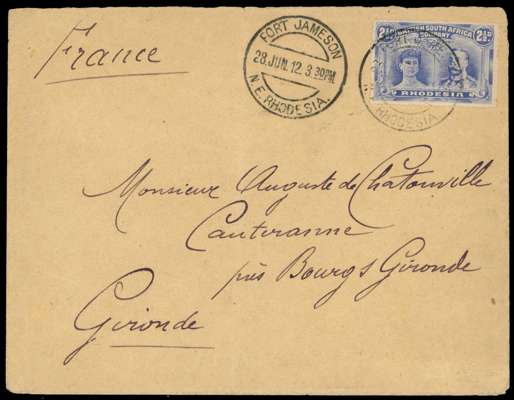 France
FORT JAMESON
28.JUN.12.3.30PM
N.E.RHODESIA.
2½d. BRITISH SOUTH AFRICA 2½d.
COMPANY
RHODESIA
RHODESIA.
Monsieur Auguste de Chatouville
Cauteranne
près Bourg s Gironde
Gironde